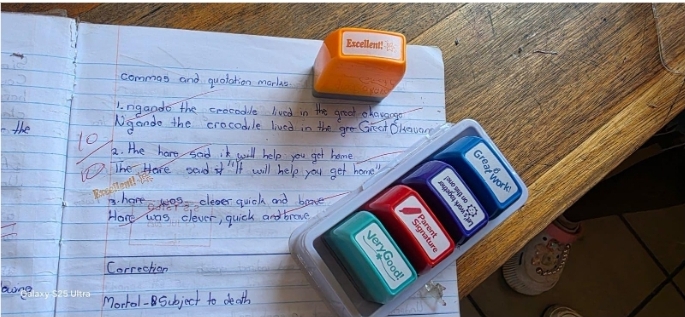 commas and quotation marks
1. ngando the crocodile lived in the great okavango
Ngando the crocodile lived in the gre Great Okavan
- the
10
10
2. the hare said it will help you get home
The Hare said "It will help you get home"
Excellent!
3. hare was clever quick and brave
Hare was clever, quick and brave
Correction
Mortal - Subject to death
Galaxy S25 Ultra
Excellent!
Great Work!
Let's work together on this one!
Parent Signature
Very Good!